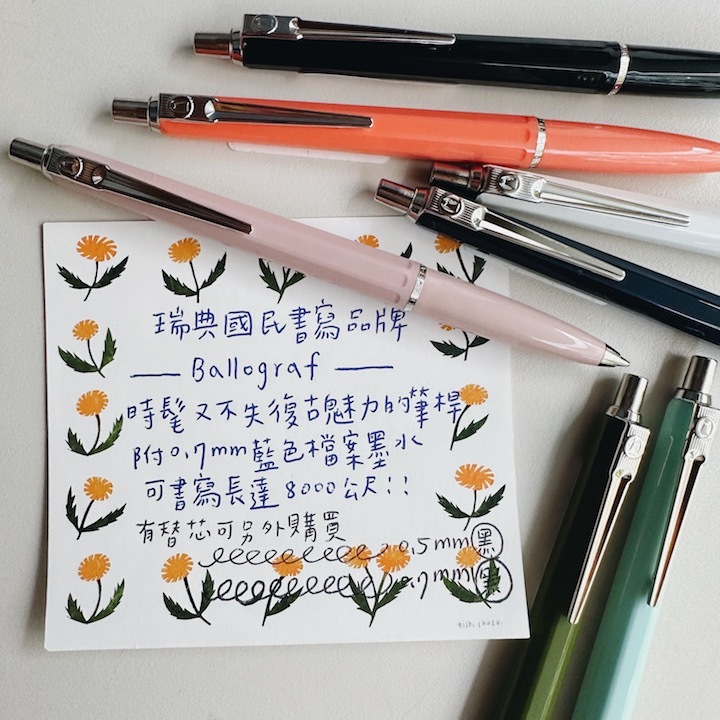 瑞典國民書寫品牌
— Ballograf —
時髦又不失復古魅力的筆桿
附0.7mm藍色檔案墨水
可書寫長達8000公尺!!
有替芯可另外購買
0.5mm 黑
0.7mm